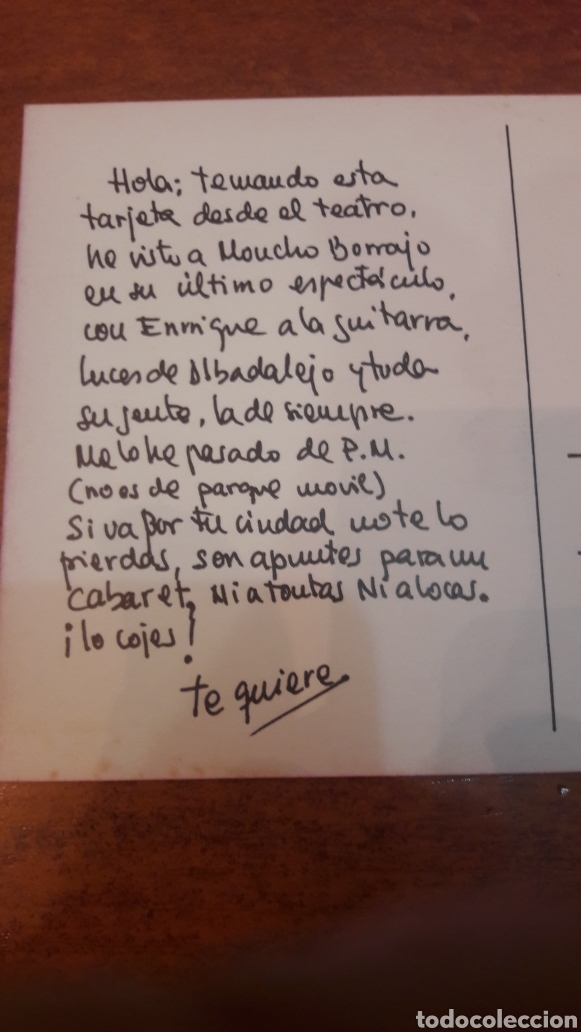 Hola; te mando esta
tarjeta desde el teatro,
he visto a Moncho Borrajo
en su último espectáculo,
con Enrique a la guitarra,
luces de Albadalejo y toda
su gente, la de siempre.
Me lo he pasado de P.M.
(no es de parque movil)
Si va por tu ciudad no te lo
pierdas, son apuntes para un
cabaret, Ni a tontas Ni a locas.
¡lo cojes!
te quiere.
todocoleccion